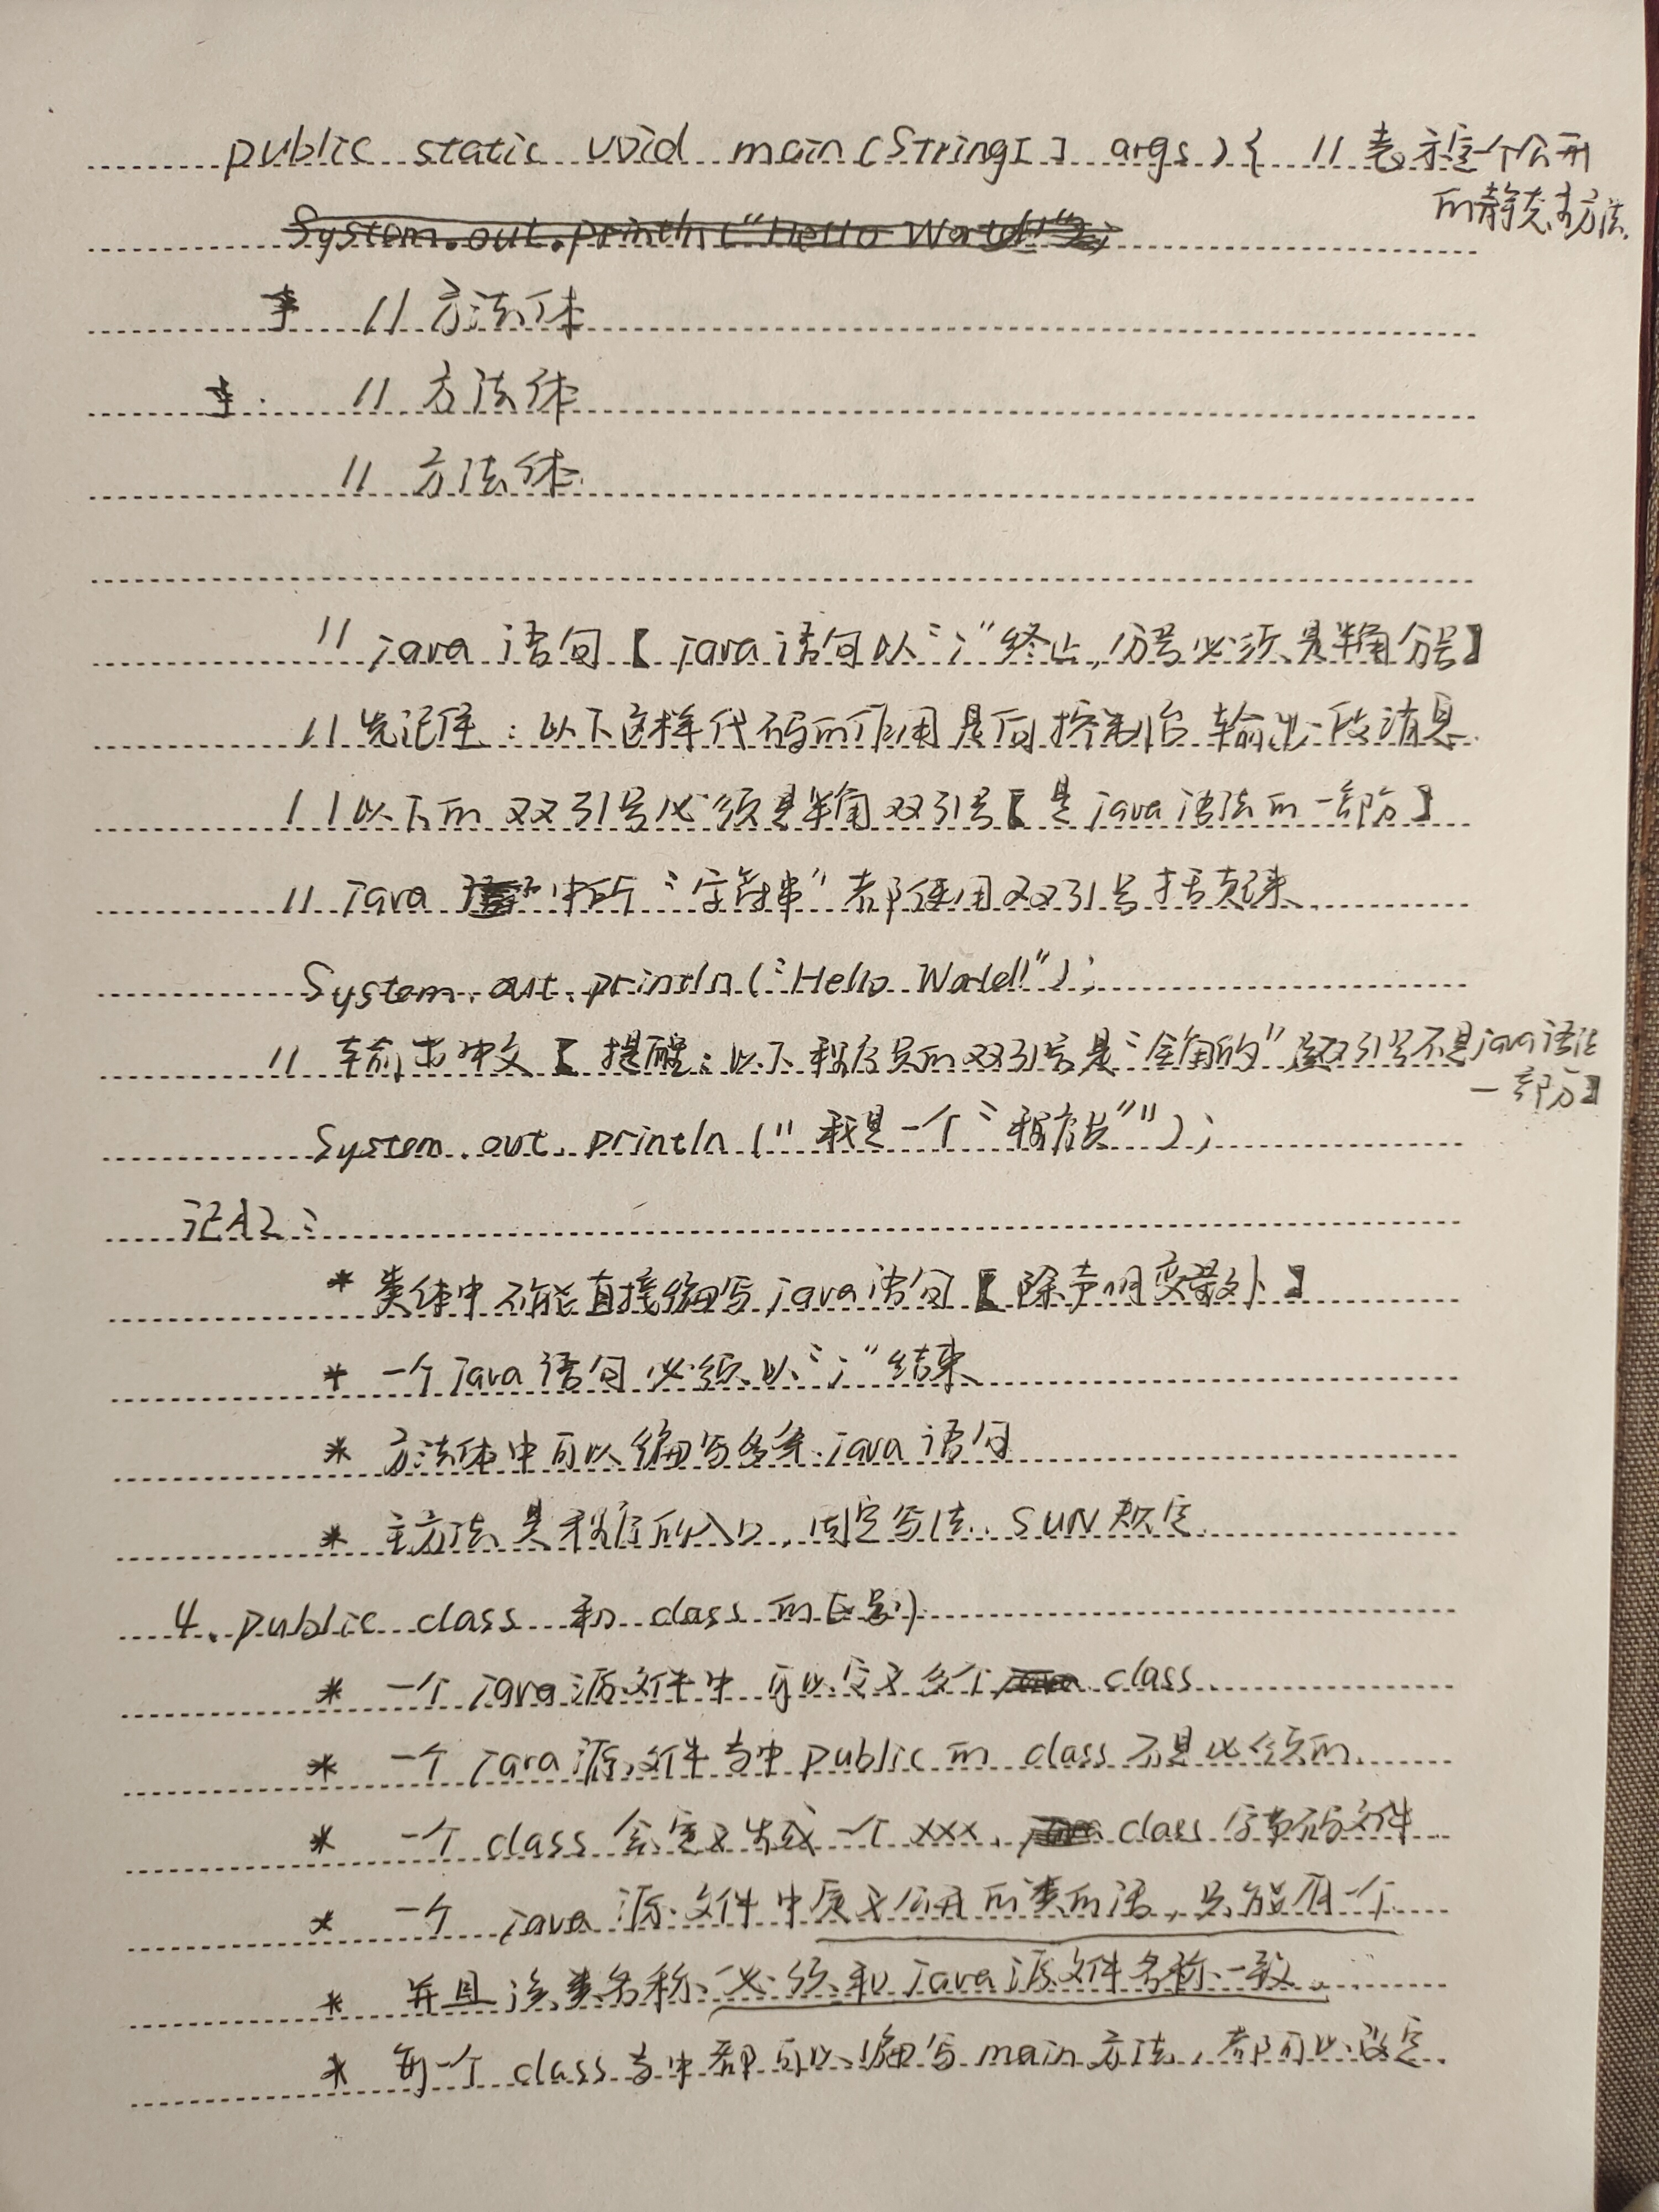 public static void main(String[] args){ // 表示定一个公开
的静态方法.
System.out.println("Hello World!");
// 方法体
// 方法体
// 方法体.
// java 语句【java语句以";"终止,分号必须是半角分号】
// 先记住:以下这样代码的作用是向控制台输出一段消息.
// 以下的双引号必须是半角双引号【是java语法的一部分】
// Java 中所"字符串"都使用双引号括起来.
System.out.println("Hello World!");
// 输出中文【提醒:以下程序员的双引号是"全角的",这双引号不是java语法
一部分】
System.out.println("我是一个"程序员"");
记忆:
* 类体中不能直接编写java语句【除声明变量外】
* 一个Java语句必须以";"结束
* 方法体中可以编写多条java语句
* 主方法是程序的入口,固定写法,SUN规定.
4.public class 和 class 的区别
* 一个Java源文件中可以定义多个 class.
* 一个Java源文件当中public的class不是必须的.
* 一个class会定义生成一个xxx.class字节码文件
* 一个java源文件中定义公开的类的话,只能有一个
* 并且该类名称必须和Java源文件名称一致。
* 每一个class当中都可以编写main方法,都可以设定.